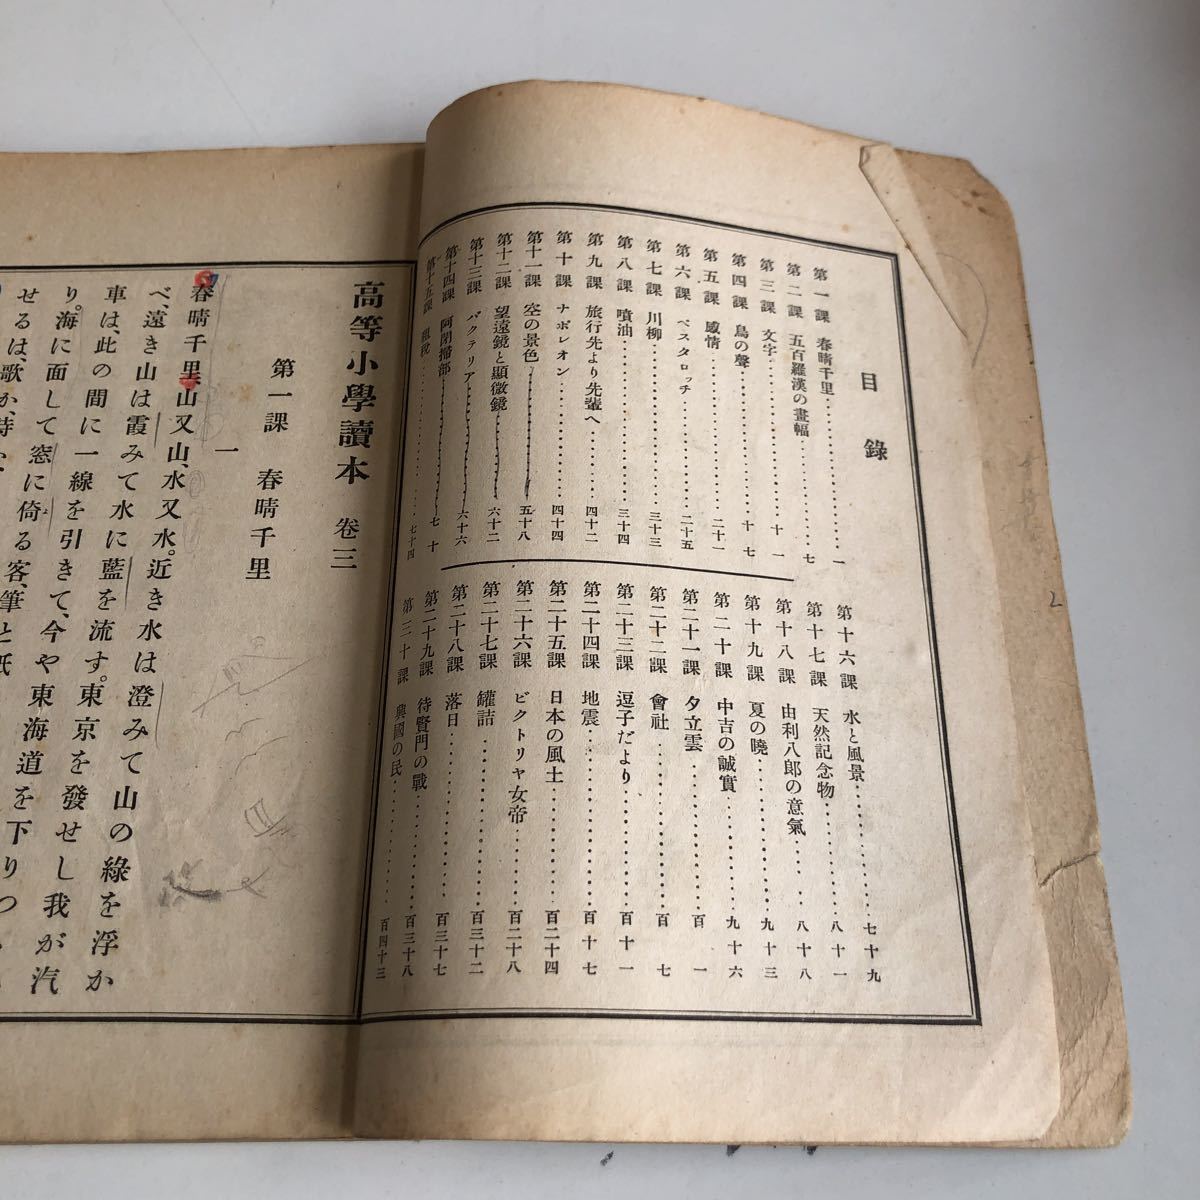 目錄
第一課 春晴千里 一
第二課 五百羅漢の畫幅 七
第三課 文字 十一
第四課 鳥の聲 十七
第五課 感情 二十一
第六課 ペスタロッチ 二十五
第七課 川柳 三十三
第八課 噴油 三十四
第九課 旅行先より先輩へ 四十二
第十課 ナポレオン 四十四
第十一課 空の景色 五十八
第十二課 望遠鏡と顯微鏡 六十二
第十三課 バクテリア 六十六
第十四課 阿閉掃部 七十
第十五課 租稅 七十四
第十六課 水と風景 七十九
第十七課 天然記念物 八十一
第十八課 由利八郎の意氣 八十八
第十九課 夏の曉 九十三
第二十課 中吉の誠實 九十六
第二十一課 夕立雲 百一
第二十二課 會社 百七
第二十三課 逗子だより 百十一
第二十四課 地震 百十七
第二十五課 日本の風土 百二十四
第二十六課 ビクトリヤ女帝 百二十八
第二十七課 罐詰 百三十二
第二十八課 落日 百三十七
第二十九課 待賢門の戰 百三十八
第三十課 興國の民 百四十三
高等小學讀本 卷三
第一課 春晴千里
一
春晴千里、山又山、水又水。近き水は澄みて山の綠を浮か
べ、遠き山は霞みて水に藍を流す。東京を發せし我が汽
車は、此の間に一線を引きて、今や東海道を下りつ
り。海に面して窓に倚る客、筆と紙
せるは、歌か、詩か、